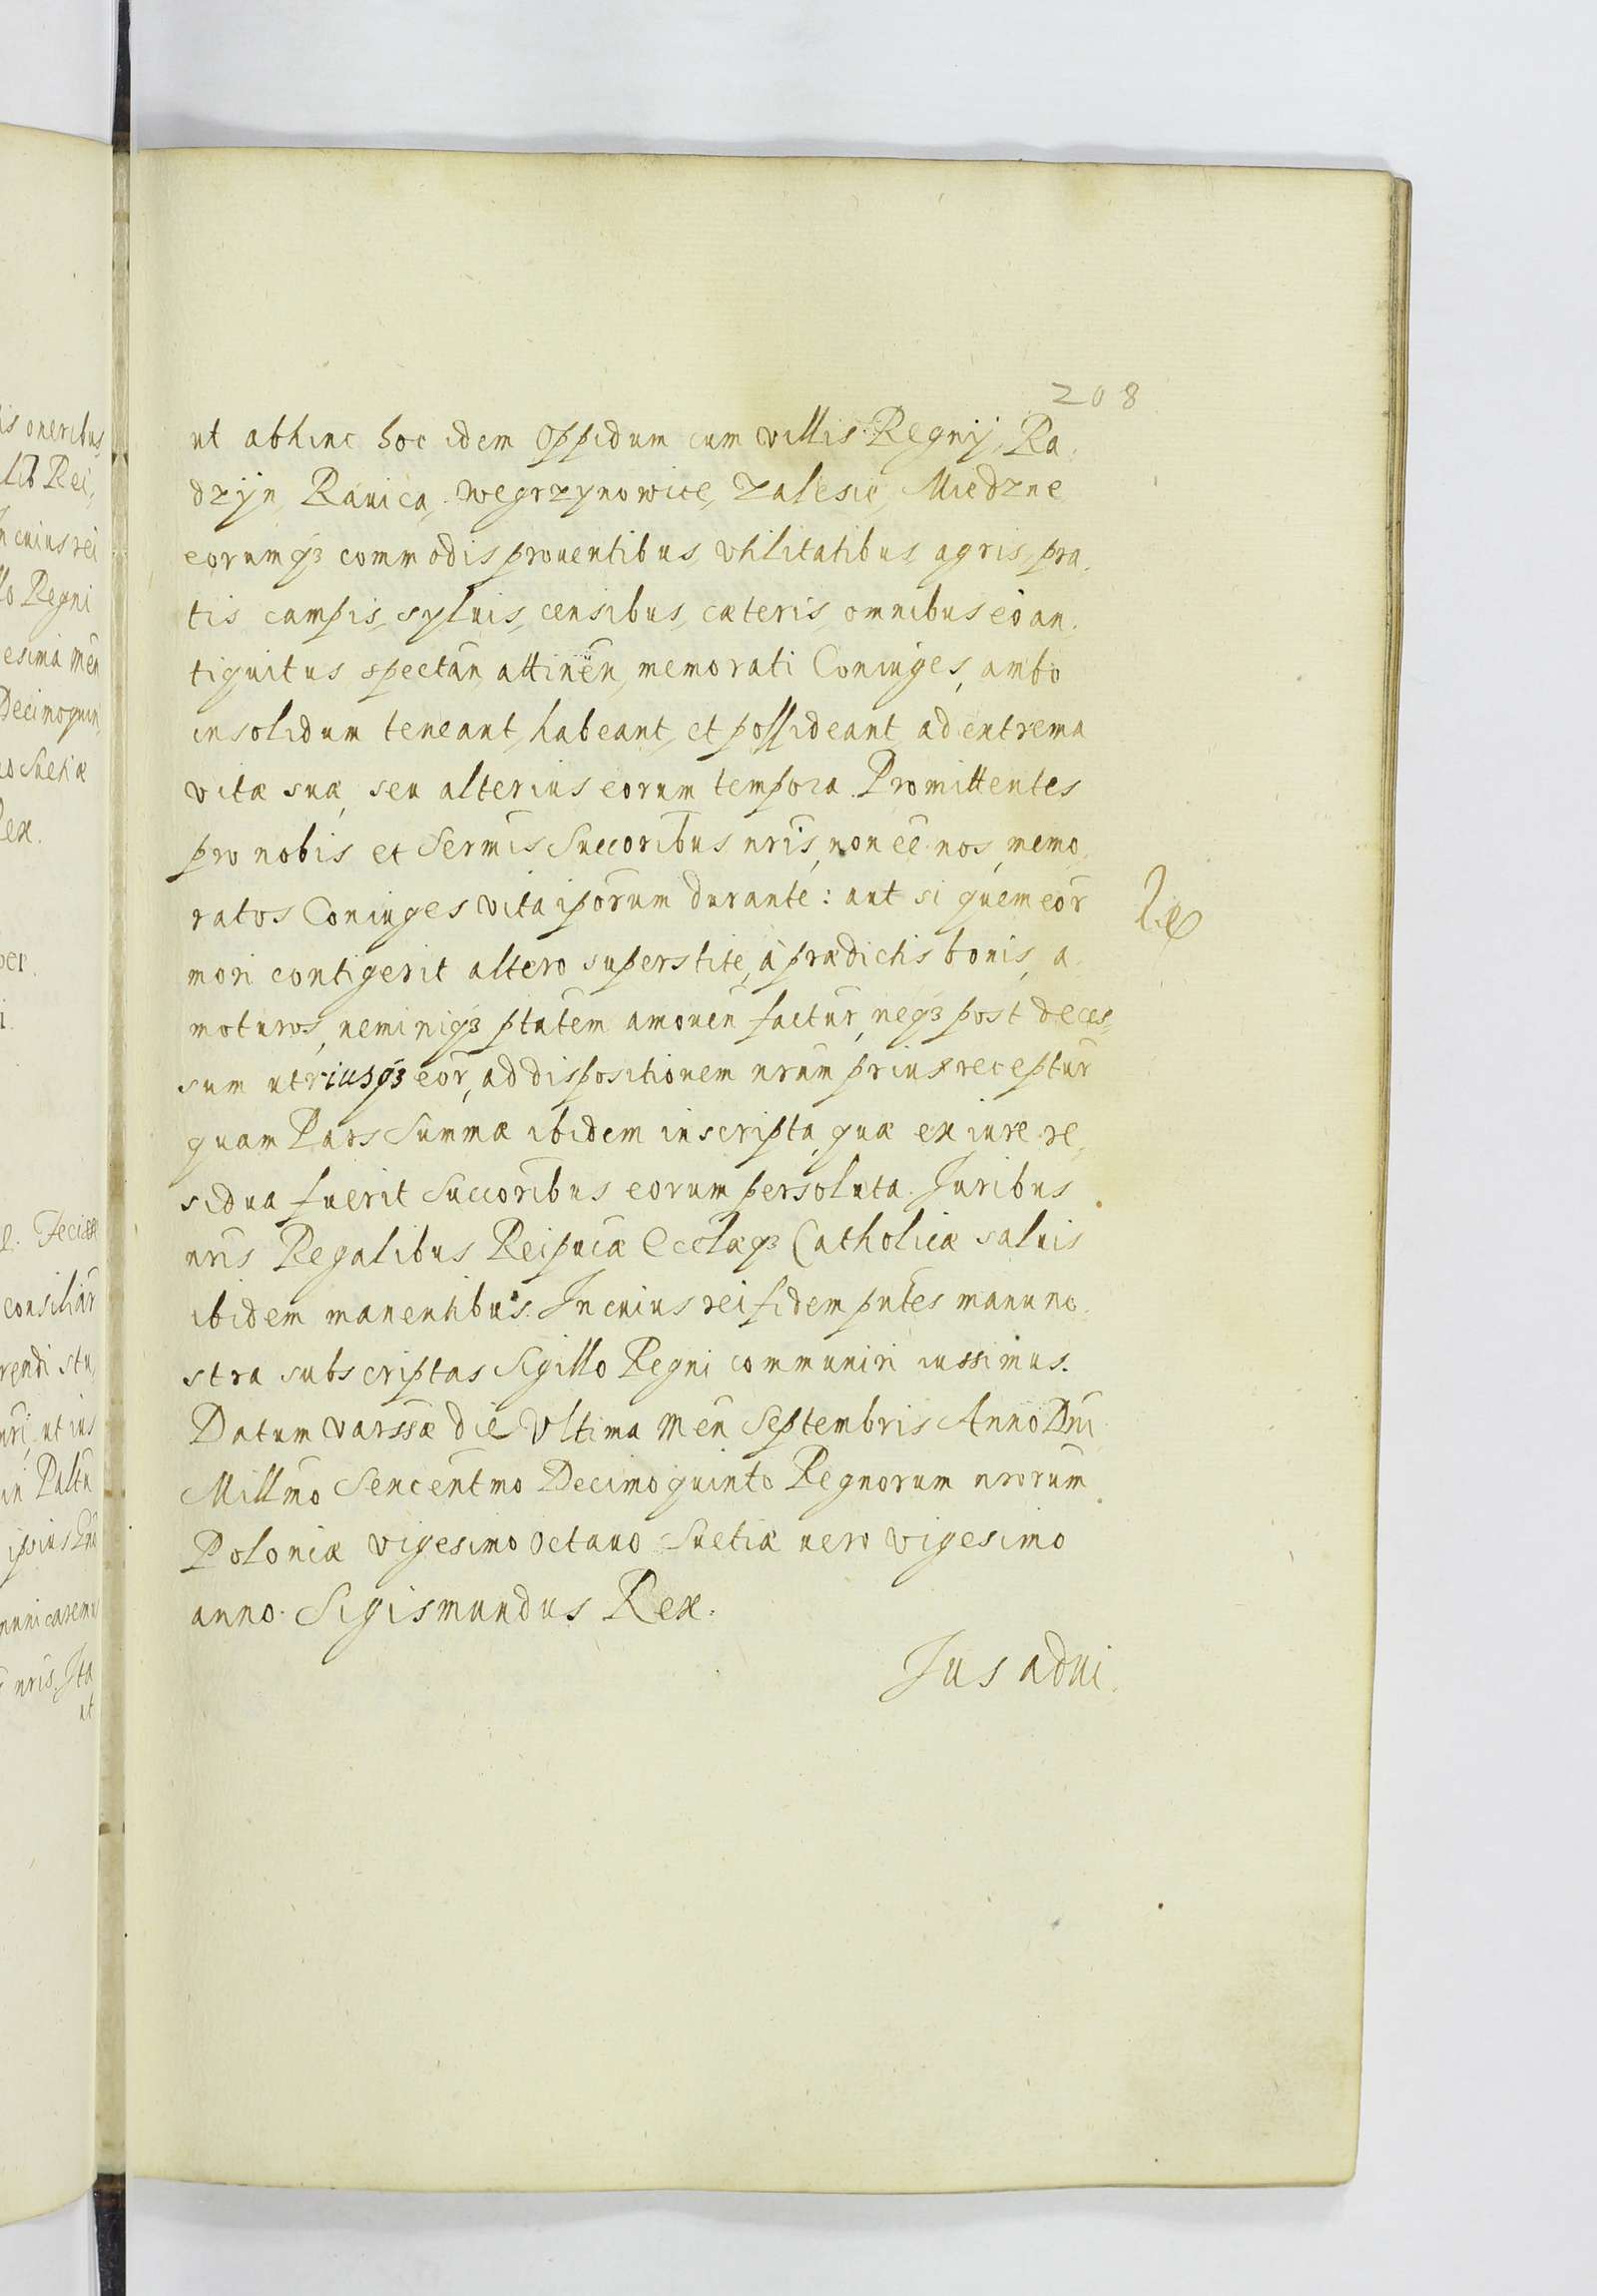 208
ut abhinc hoc idem Oppidum cum villis Regny, Ra,
dzyn, Rauica, Wegrzynowice, Zalesie, Miedzne
eorumq3 commodis prouentibus, vtilitatibus agris, pra,
tis campis, syluis, censibus, cæteris, omnibus eo an,
tiquitus spectan̄, attinen̄, memorati Coniuges, ambo
insolidum teneant, habeant, et possideant ad extrema
vitæ suæ, seu alterius eorum tempora. Promittentes
pro nobis et Sermis Succoribus nris, non eē nos, memo,
ratos Coniuges vita ipsorum durante: aut si quem eor̄
mori contigerit altero superstite, à prædictis bonis, a,
moturos, neminiq3 ptatem amouen̄ factur̄, neq3 post deces,
sum utriusq3 eor̄, ad dispositionem nram prius receptur̄
quam Pars Summæ ibidem inscripta, quæ ex iure re,
sidua fuerit Succoribus eorum persoluta. Juribus
nris Regalibus Reipucæ Ecclæq3 Catholicæ saluis
ibidem manentibus. In cuius rei fidem pntes manu no,
stra subscriptas Sigillo Regni communiri iussimus.
Datum Varssæ die Vltima Men̄ Septembris Anno Dni
Millmo Sexcentmo Decimo quinto Regnorum nrorum
Poloniæ vigesimo octauo Suetiæ uero vigesimo
anno. Sigismundus Rex.
Jus adui,
is oneribus
n cuius rei
lo Regni
esima Men
Decimoquin,
Suetiæ
Rex.
consiliar̄
rendi stu,
nri, ut ius
nris. Ita
ut